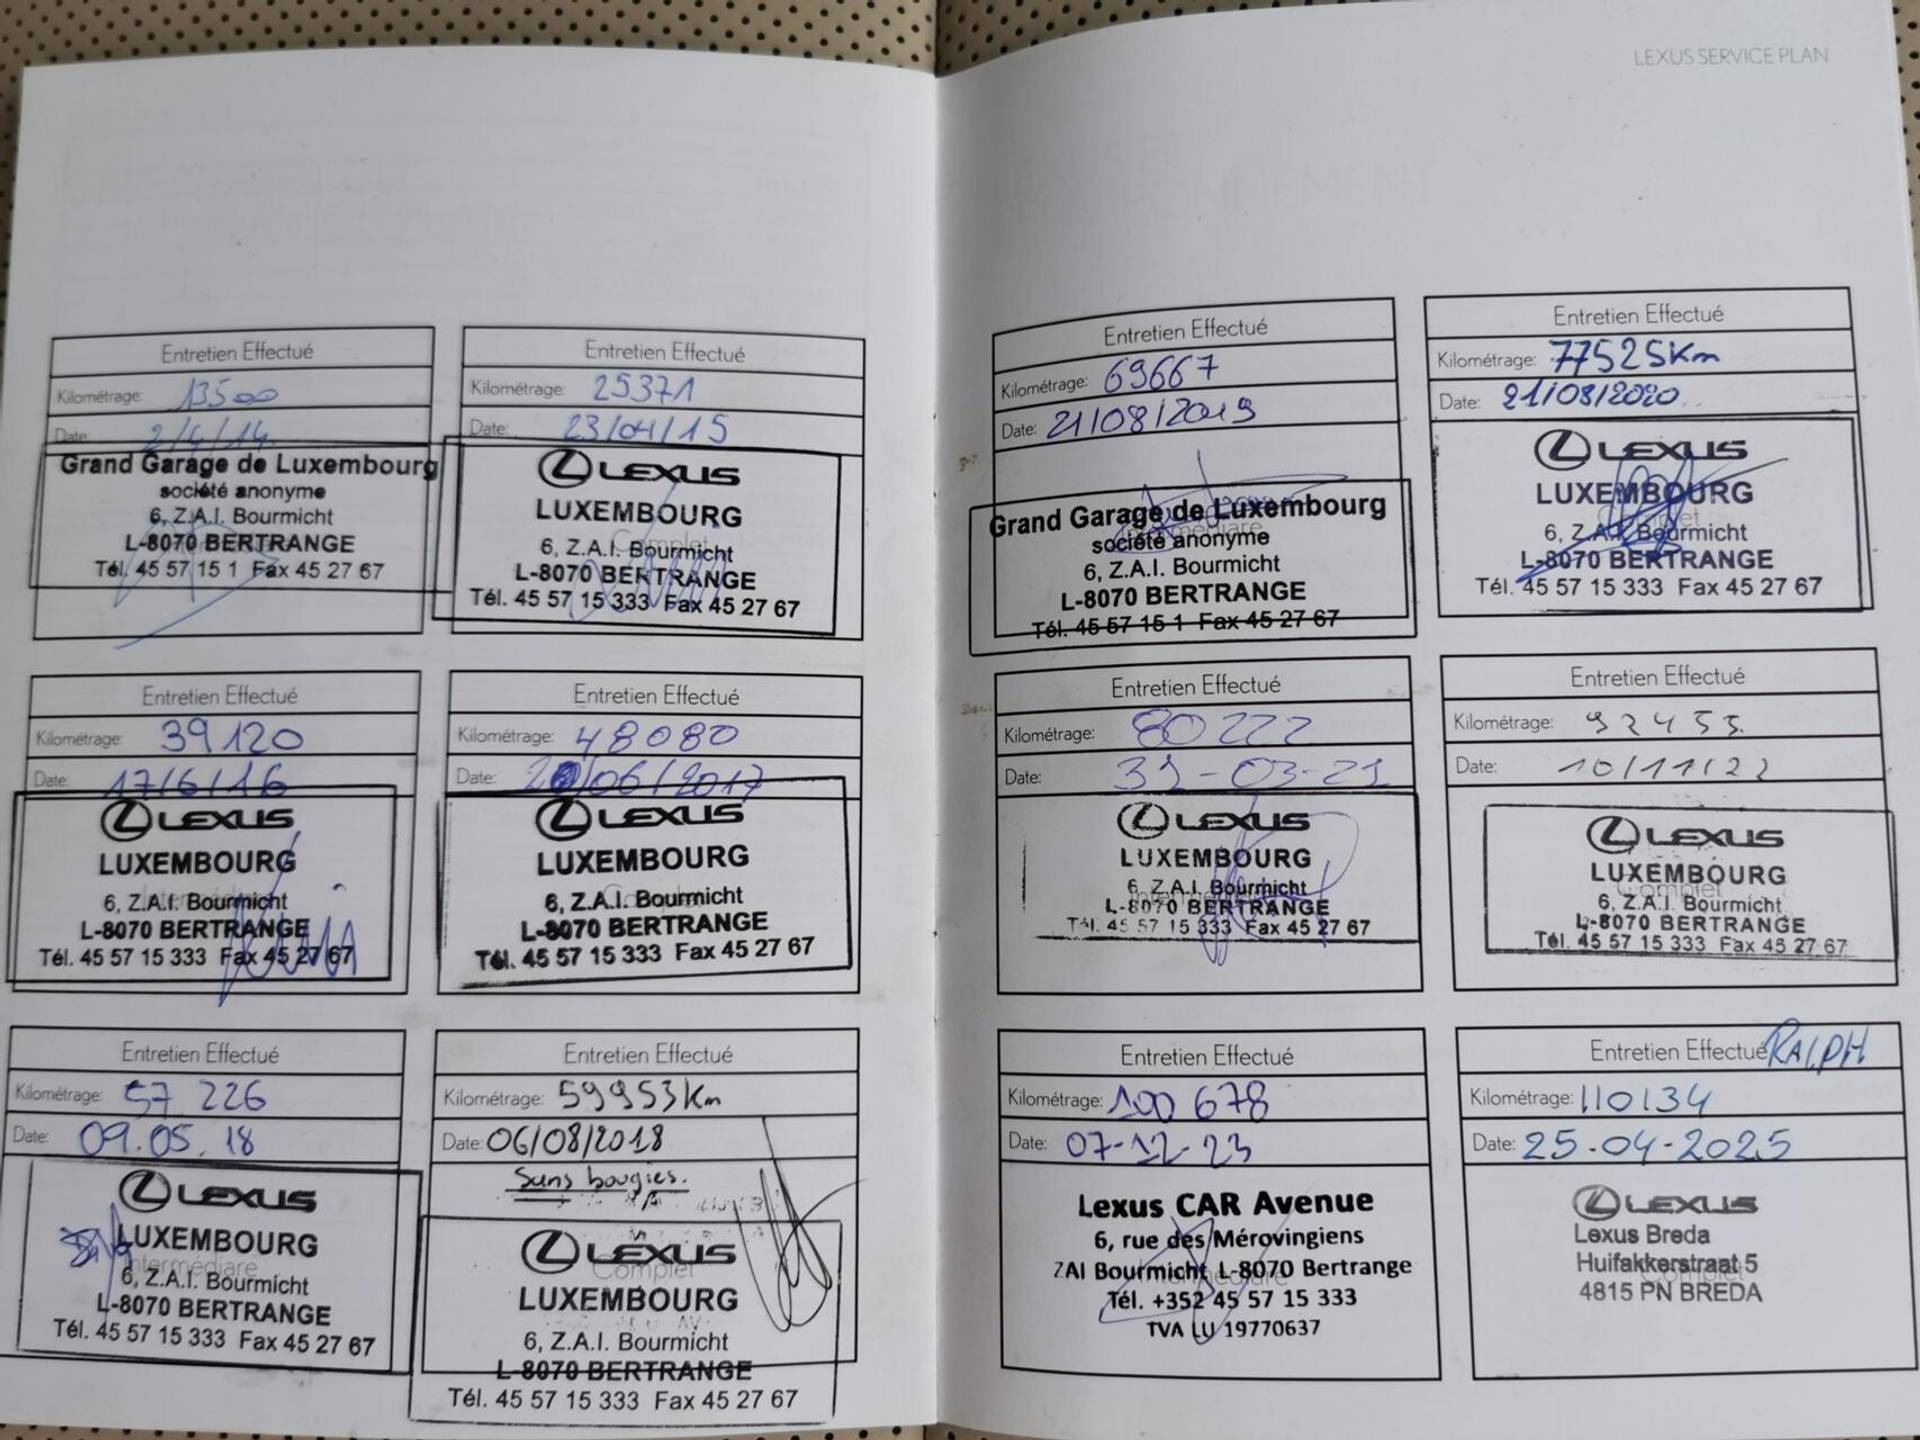 LEXUS SERVICE PLAN
Entretien Effectué
Kilométrage: 13500
Date: 2/4/14
Grand Garage de Luxembourg
société anonyme
6, Z.A.I. Bourmicht
L-8070 BERTRANGE
Tél. 45 57 15 1 Fax 45 27 67
Entretien Effectué
Kilométrage: 25371
Date: 23/04/15
LEXUS
LUXEMBOURG
Complet
6, Z.A.I. Bourmicht
L-8070 BERTRANGE
Tél. 45 57 15 333 Fax 45 27 67
Entretien Effectué
Kilométrage: 39120
Date: 17/6/16
LEXUS
LUXEMBOURG
Intermédiaire
6, Z.A.I. Bourmicht
L-8070 BERTRANGE
Tél. 45 57 15 333 Fax 45 27 67
Entretien Effectué
Kilométrage: 48080
Date: 20/06/2017
LEXUS
LUXEMBOURG
Complet
6, Z.A.I. Bourmicht
L-8070 BERTRANGE
Tél. 45 57 15 333 Fax 45 27 67
Entretien Effectué
Kilométrage: 57 226
Date: 09.05.18
LEXUS
LUXEMBOURG
Intermédiare
6, Z.A.I. Bourmicht
L-8070 BERTRANGE
Tél. 45 57 15 333 Fax 45 27 67
Entretien Effectué
Kilométrage: 59953Km
Date: 06/08/2018
Sans bougies.
LEXUS
Complet
LUXEMBOURG
6, Z.A.I. Bourmicht
L-8070 BERTRANGE
Tél. 45 57 15 333 Fax 45 27 67
Entretien Effectué
Kilométrage: 69667
Date: 21/08/2019
Grand Garage de Luxembourg
Intermédiare
société anonyme
6, Z.A.I. Bourmicht
L-8070 BERTRANGE
Tél. 45 57 15 1 Fax 45 27 67
Entretien Effectué
Kilométrage: 77525Km
Date: 21/08/2020
LEXUS
LUXEMBOURG
Complet
6, Z.A.I. Bourmicht
L-8070 BERTRANGE
Tél. 45 57 15 333 Fax 45 27 67
Entretien Effectué
Kilométrage: 80222
Date: 31-03-21
LEXUS
LUXEMBOURG
6, Z.A.I. Bourmicht
Intermédiare
L-8070 BERTRANGE
Tél. 45 57 15 333 Fax 45 27 67
Entretien Effectué
Kilométrage: 92453
Date: 10/11/22
LEXUS
LUXEMBOURG
Complet
6, Z.A.I. Bourmicht
L-8070 BERTRANGE
Tél. 45 57 15 333 Fax 45 27 67
Entretien Effectué
Kilométrage: 100 678
Date: 07-12-23
Lexus CAR Avenue
6, rue des Mérovingiens
ZAI Bourmicht L-8070 Bertrange
Intermédiare
Tél. +352 45 57 15 333
TVA LU 19770637
Entretien Effectué RALPH
Kilométrage: 110134
Date: 25-04-2025
LEXUS
Lexus Breda
Huifakkerstraat 5
Complet
4815 PN BREDA